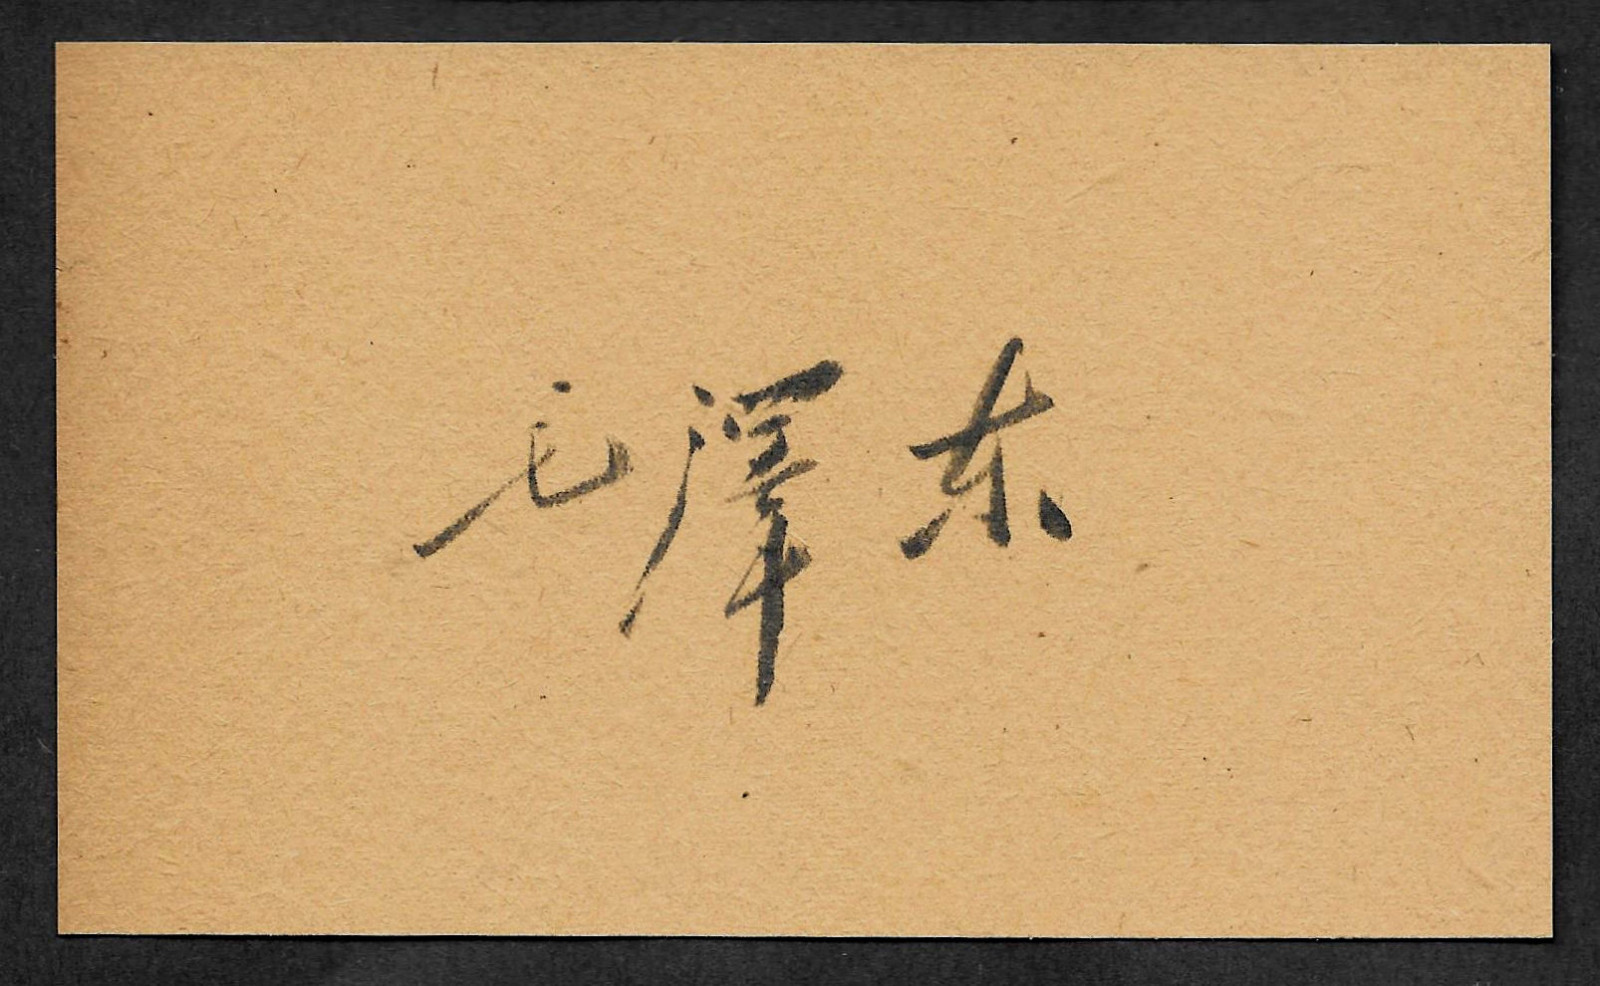 毛澤东